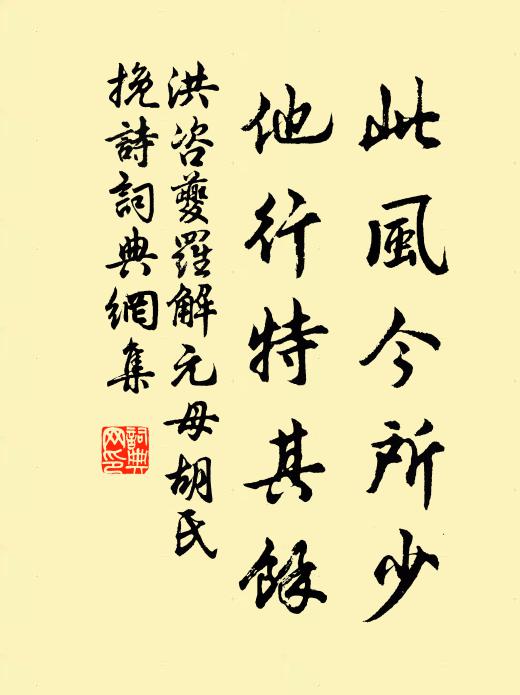 此風今所少
他行特其餘
洪咨夔羅解元母胡氏
挽詩詞典網集
詞典
网印